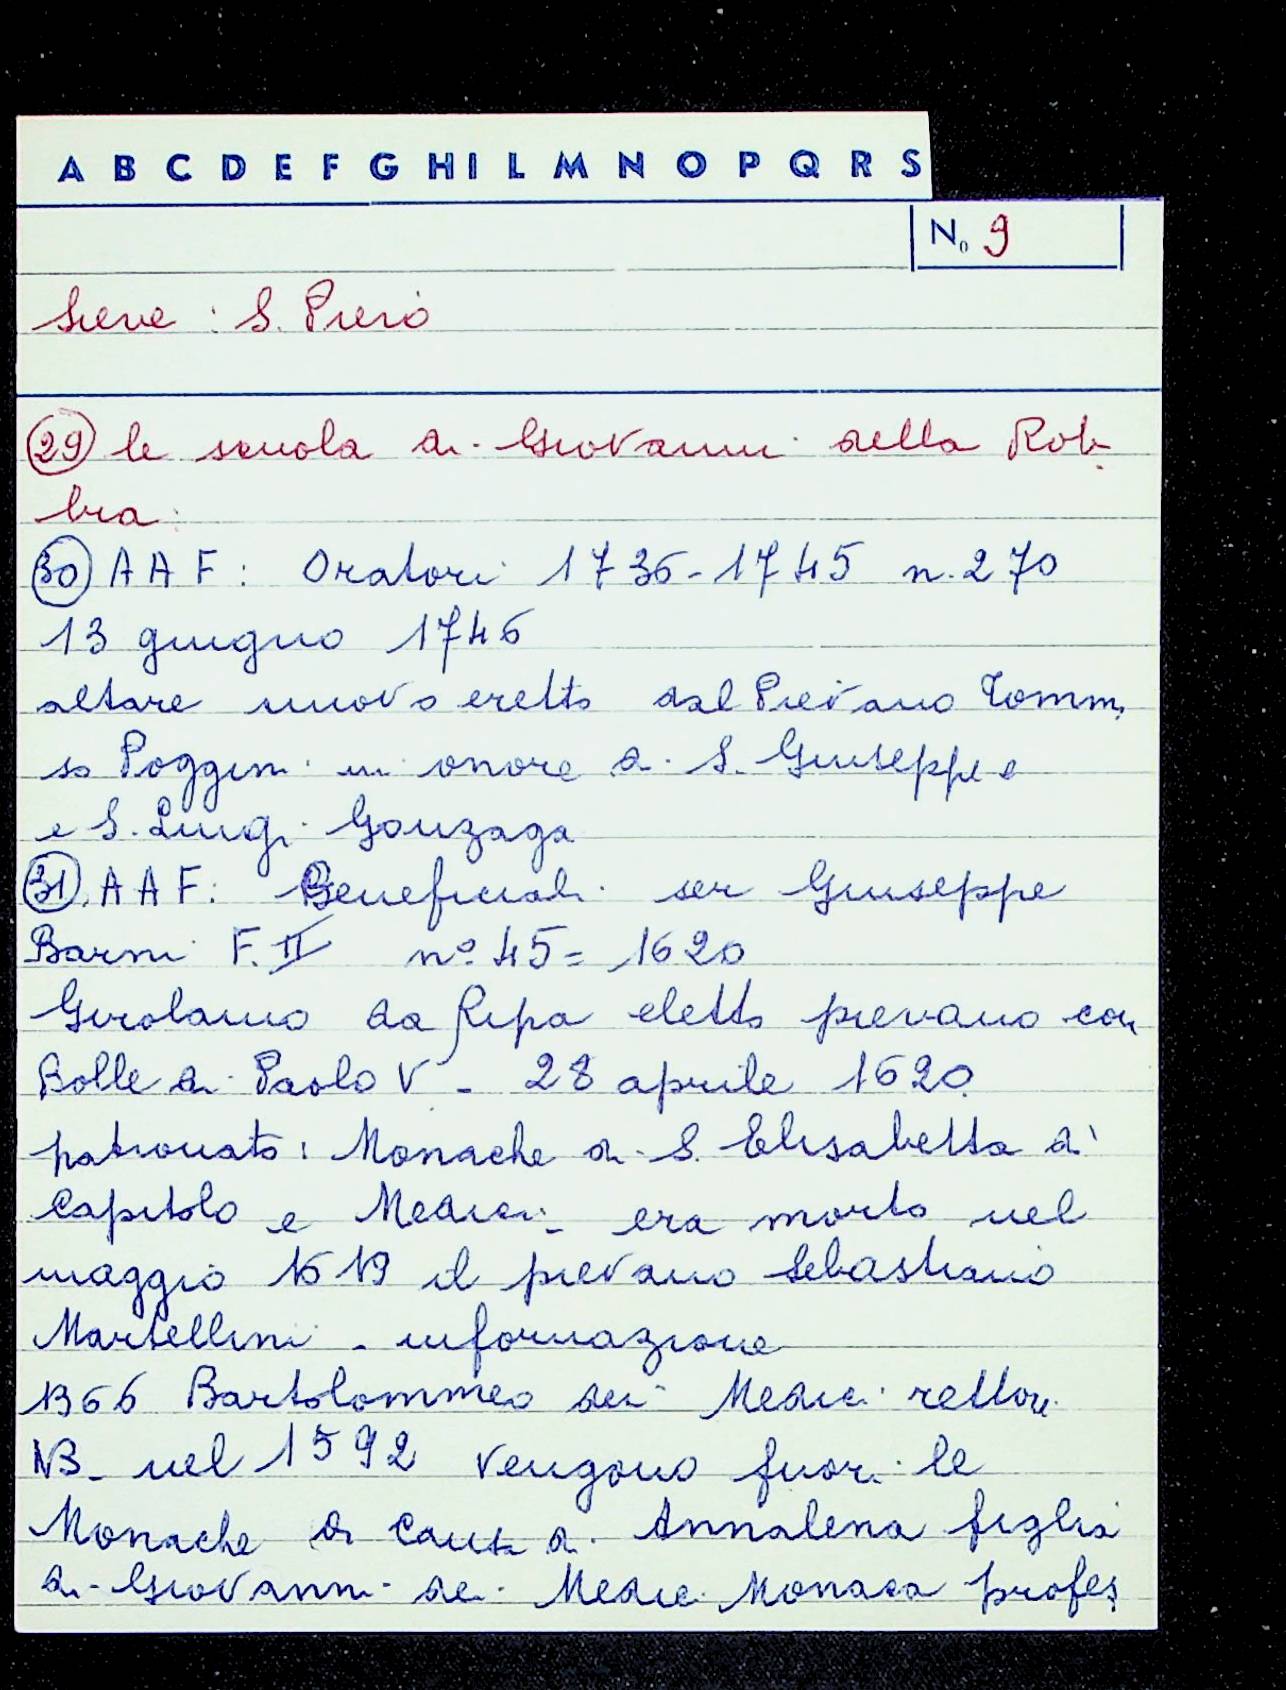 A B C D E F G H I L M N O P Q R S
No 9
Sieve : S. Piero
29 la scuola di Giovanni della Rob-
bia.
30 AAF: Oratori 1736-1745 n. 270
13 giugno 1746
altare nuovo eretto dal Pievano Tomm.
so Poggini in onore di S. Giuseppe
e S. Luigi Gonzaga
31. AAF: Beneficiali ser Giuseppe
Barni F. II nº 45 = 1620
Girolamo da Ripa eletto pievano con
Bolle di Paolo V - 28 aprile 1620.
patronato: Monache di S. Elisabetta di
Capitolo e Medici - era morto nel
maggio 1619 il pievano Sebastiano
Martellini - informazione
1366 Bartolommeo dei Medici rettore
NB - nel 1592 vengono fuori le
Monache di causa di Annalena figlia
di Giovanni dei Medici Monaca profes